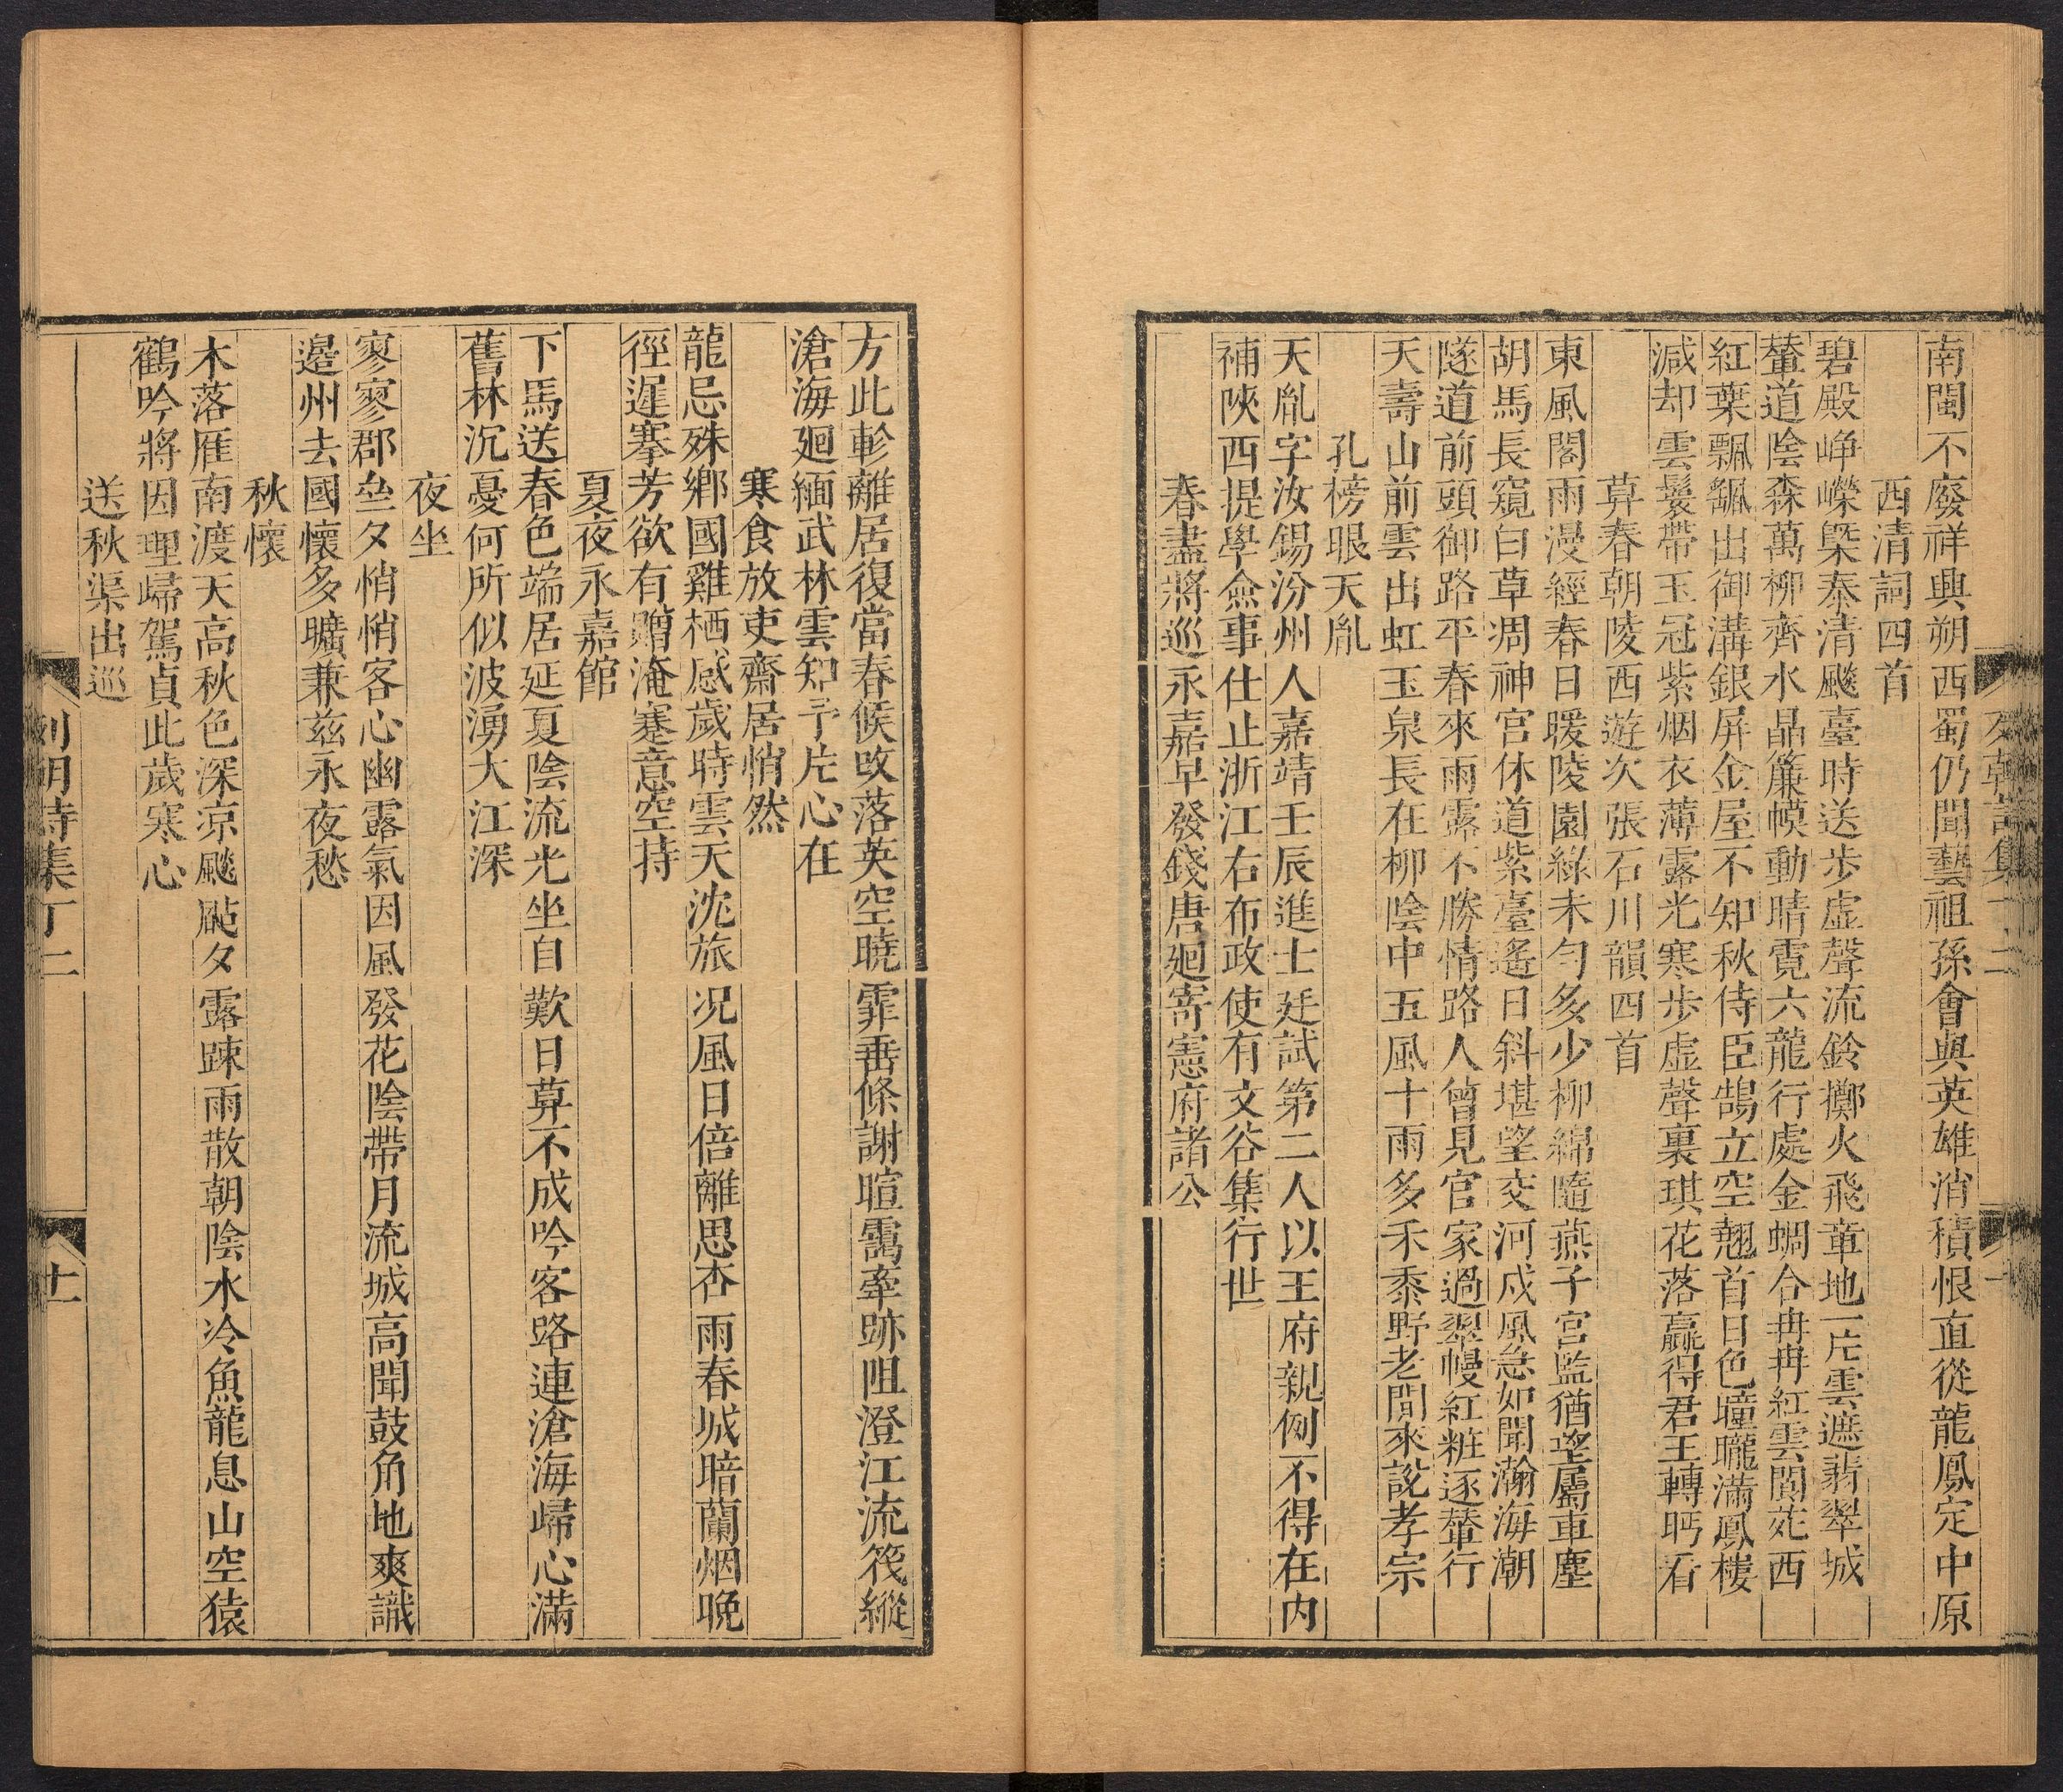 南閩不廢祥興朔西蜀仍聞藝祖孫會與英雄消積恨直從龍鳳定中原
西清詞四首
碧殿崢嶸槩泰清飇臺時送步虛聲流鈴擲火飛章地一片雲遮翡翠城
輦道陰森萬柳齊水晶簾幙動晴霓六龍行處金蜩合冉冉紅雲閬苑西
紅葉飄飖出御溝銀屏金屋不知秋侍臣鵠立空翹首日色曈曨滿鳳樓
減却雲鬟帶玉冠紫烟衣薄露光寒步虛聲裏琪花落贏得君王轉眄看
暮春朝陵西遊次張石川韻四首
東風閣雨漫經春日暖陵園綠未勻多少柳綿隨燕子宮監猶望屬車塵
胡馬長窺白草凋神宮休道紫臺遙日斜堪望交河戍風急如聞瀚海潮
隧道前頭御路平春來雨露不勝情路人曾見官家過翠幔紅粧逐輦行
天壽山前雲出虹玉泉長在柳陰中五風十雨多禾黍野老閒來說孝宗
孔榜眼天胤
天胤字汝錫汾州人嘉靖壬辰進士廷試第二人以王府親例不得在內
補陝西提學僉事仕止浙江右布政使有文谷集行世
春盡將巡永嘉早發錢唐廻寄憲府諸公
方此軫離居復當春候改落英空曉霏垂條謝暄靄牽跡阻澄江流筏縱
滄海廻緬武林雲知予片心在
寒食放吏齋居悄然
龍忌殊鄉國雞栖感歲時雲天沈旅況風日倍離思杏雨春城暗蘭烟晚
徑遲搴芳欲有贈淹蹇意空持
夏夜永嘉館
下馬送春色端居延夏陰流光坐自歎日暮不成吟客路連滄海歸心滿
舊林沉憂何所似波湧大江深
夜坐
寥寥郡坐夕悄悄客心幽露氣因風發花陰帶月流城高聞鼓角地爽識
邊州去國懷多曠兼茲永夜愁
秋懷
木落雁南渡天高秋色深凉飇颭夕露踈雨散朝陰水冷魚龍息山空猿
鶴吟將因理歸駕貞此歲寒心
送秋渠出巡
列朝詩集丁二
十一